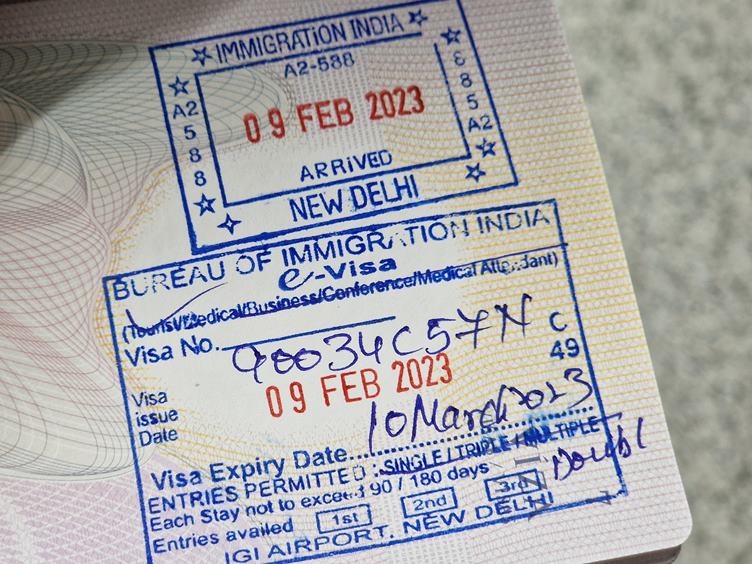 IMMIGRATION INDIA
A2-588
A2
5
8
8
09 FEB 2023
8
8
5
A2
ARRIVED
NEW DELHI
BUREAU OF IMMIGRATION INDIA
e-Visa
(Tourist/Medical/Business/Conference/Medical Attendant)
Visa No. 90034C57N
C
49
Visa issue Date
09 FEB 2023
Visa Expiry Date 10 March 2023
ENTRIES PERMITTED : SINGLE / TRIPLE / MULTIPLE Doubl
Each Stay not to exceed 90 / 180 days
Entries availed 1st 2nd 3rd
IGI AIRPORT, NEW DELHI